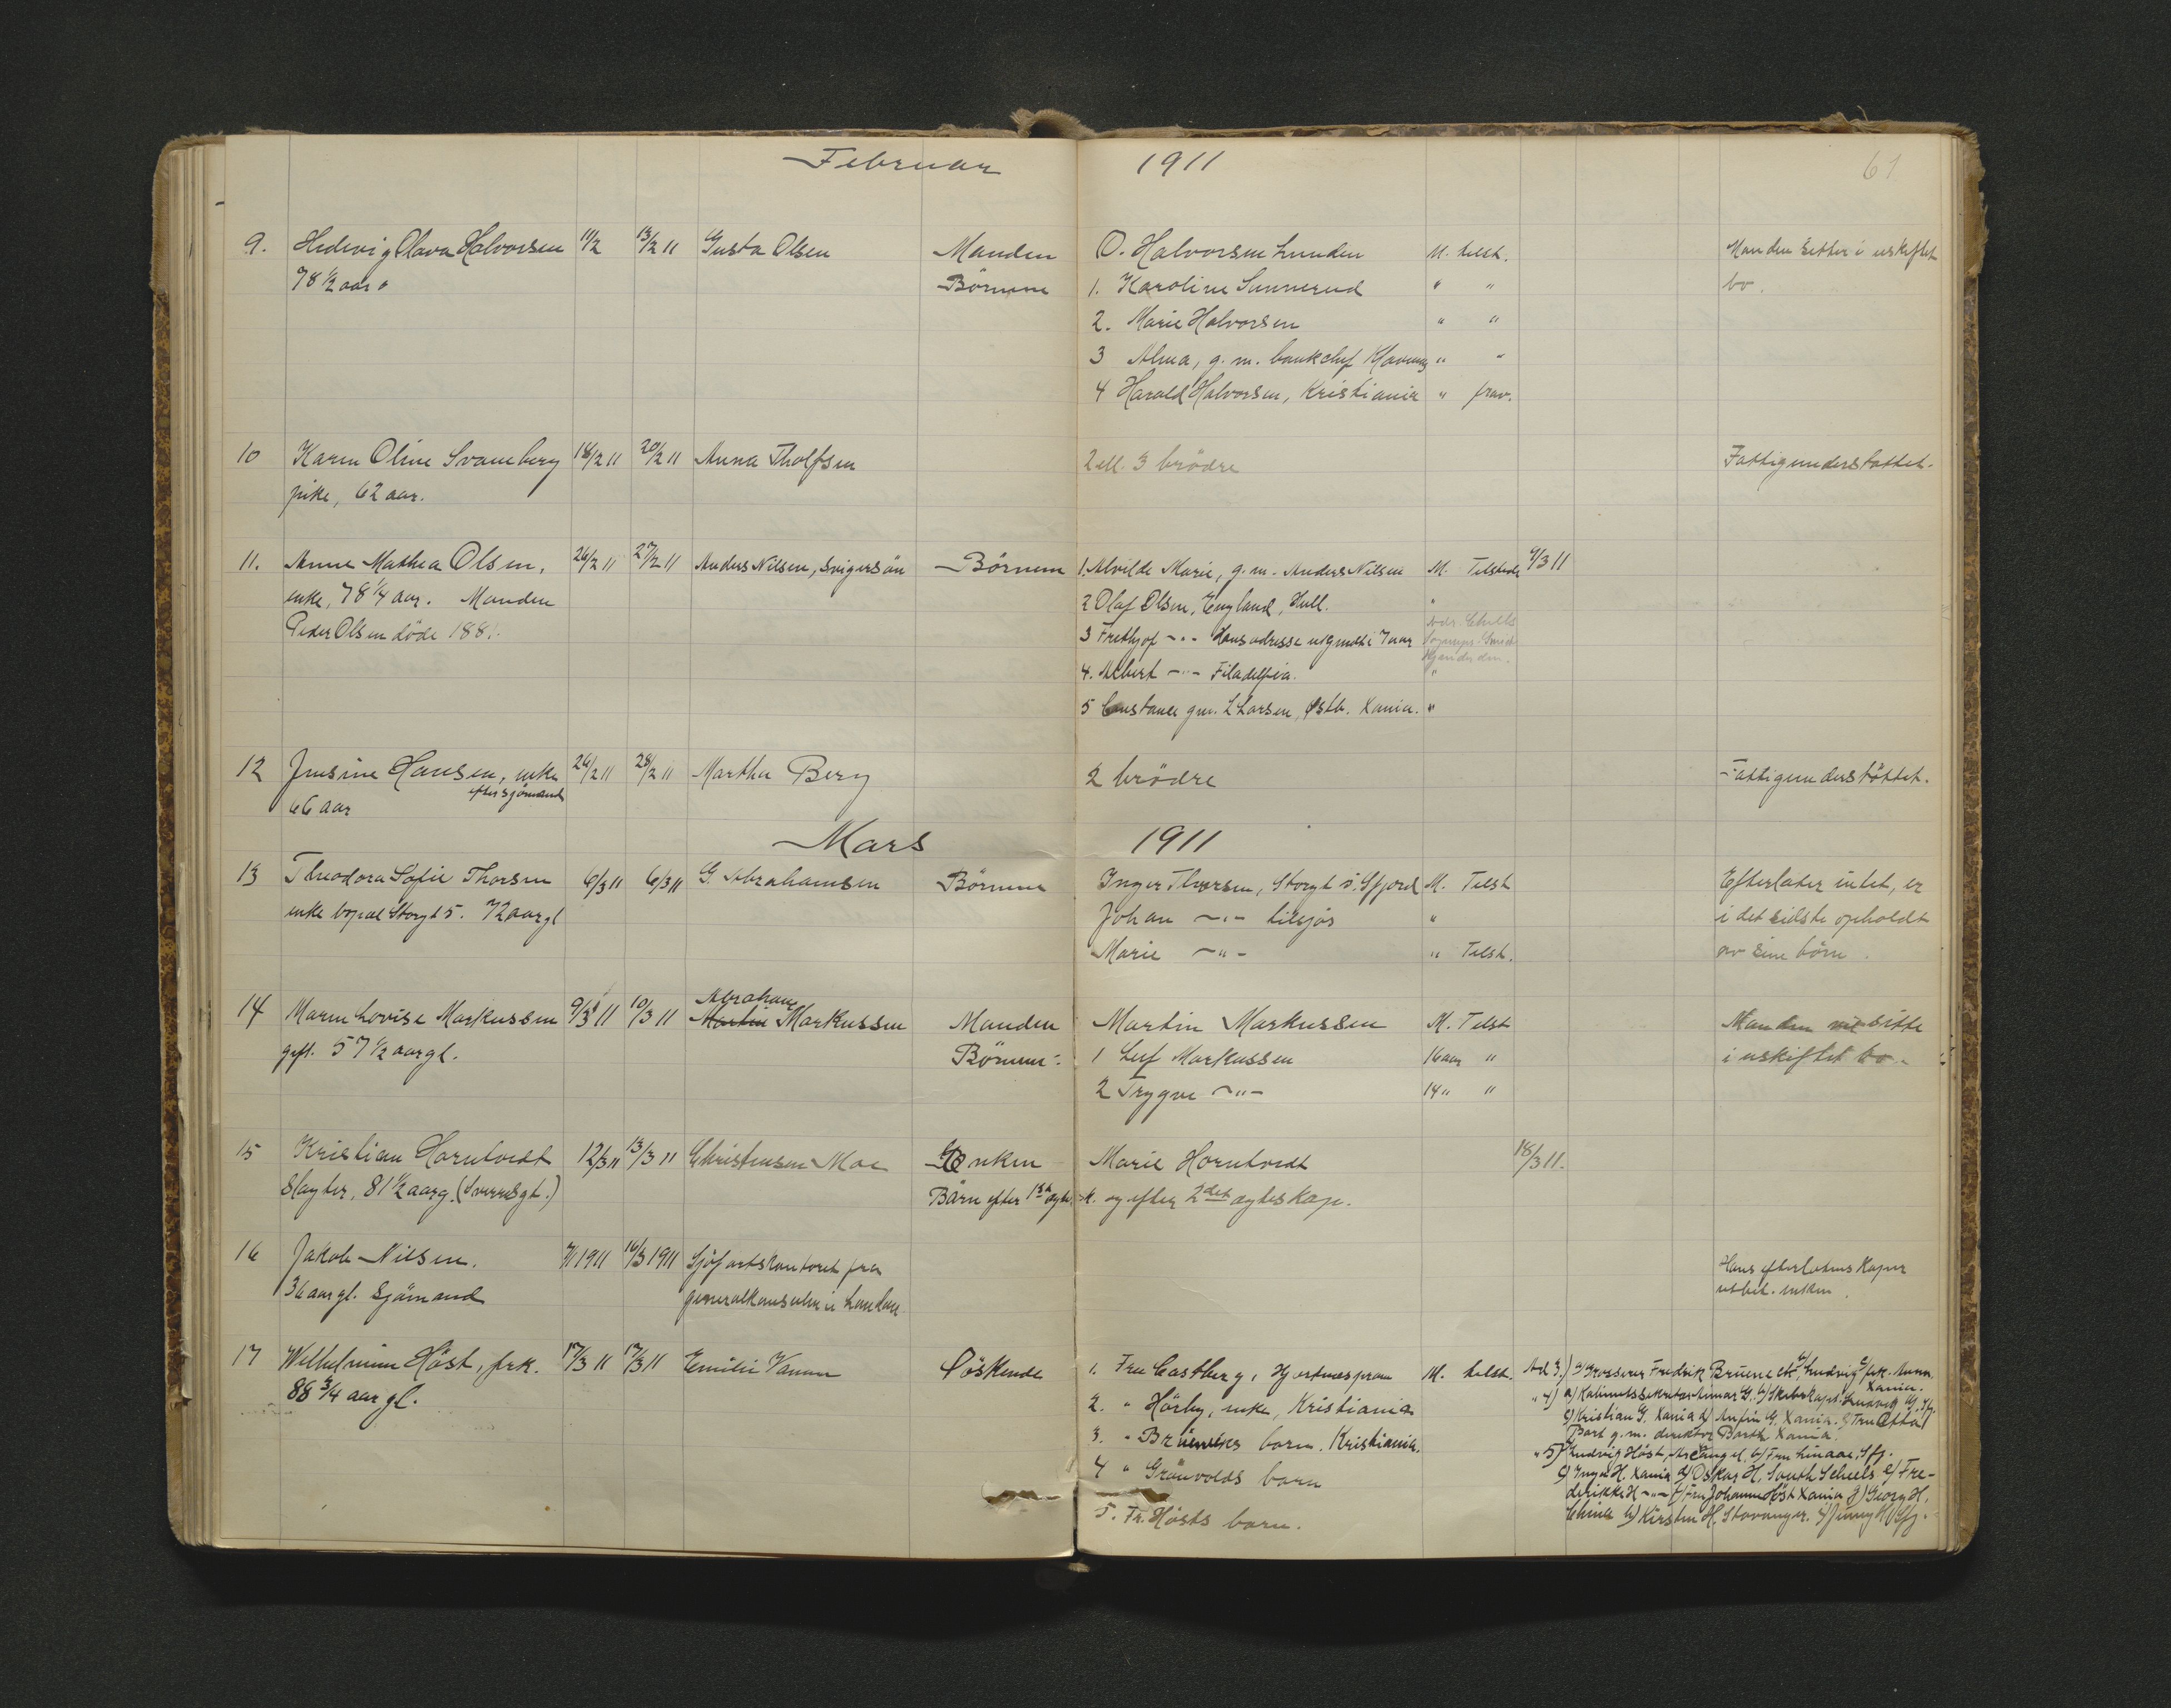 Februar 1911 61
9. Hedevig Olava Halvorsen 11/2 13/2 11 Gusta Olsen Manden O. Halvorsen Lunden M. tilst. Manden sitter i uskiftet
78 1/2 aar. Börnene 1. Karoline Sunnerud " " bo.
2. Marie Halvorsen " "
3 Alma, g. m. bankchef " "
4 Harald Halvorsen, Kristiania " frav.
10 Karen Oline Svaneberg 18/2 11 20/2 11 Anna Tholfsen 2 ell. 3 brödre Fattigunderstöttet.
pike, 62 aar.
11. Anne Mathea Olsen, 26/2 11 27/2 11 Anders Nilsen, Svigersön Börnene 1. Alvilde Marie, g. m. Anders Nilsen M. Tilstede 9/3 11
enke, 78 1/4 aar. Manden 2 Olaf Olsen, England, Hull. "
Peder Olsen döde 188
3 Frethjof -"- Hans adresse i 7 aar
4. Albert -"- Filadelfia. "
5 Constance gm. L Larsen, Østb. Xania. "
12 Jensine Hansen, enke 26/2 11 28/2 11 Martha Berg 2 brödre Fattigunderstöttet.
efter sjömand
66 aar
Mars 1911
13 Theodora Sofie Thorsen 6/3 11 6/3 11 G. Abrahamsen Börnene Inger Thorsen, Storgt 5. Sfjord M. Tilst Efterlater intet, er
enke bopæl Storgt 5. 72 aar gl Johan -"- tilsjös " i det sidste opholdt
Marie -"- " Tilst. av sine börn.
Abraham
14 Maren Lovise Markussen 9/3 11 10/3 11 Martin Markussen Manden Martin Markussen M. Tilst Manden vil sitte
gift. 57 1/2 aar gl. Börnene: 1 Leif Markussen 16 aar " i uskiftet bo.
2 Trygve -"- 14 " "
15 Kristian Horntvedt 12/3 11 13/3 11 Christensen Moe Enken Marie Horntvedt 18/3 11.
Slagter, 81 1/2 aarg. (Sverresgt.) Barn efter 1ste og efter 2det ægteskap.
16 Jakob Nilsen. 1911 16/3 1911 Sjöfartskontoret fra Hans efterladenskaper
36 aar gl. Sjömand generalkonsulen i London utbet. enken.
17 Wilhelmine Höst, frk. 17/3 11 17/3 11 Emilie Vanem Söskende 1. Fru Castberg, Hjertnespromen M. tilst. Ad 3.) a) Grosserer Fredrik Bruene etc b) Ludvig c) frk. Anna
88 3/4 aar gl. Xania.
2. " Hörby, enke, Kristiania " 4) a) Kabinetssekretær G. b) Skibskapt. Ludvig G. Sfj.
c) Kristian G. Xania d) G. Xania. e) Fru Otta
3. " Bruenes barn. Kristiania. Bart g. m. direktor Barth Xania
" 5) Ludvig Höst, Archangel. b) Fru Linaae, Sfj.
4 " Grönvolds barn c) Inga H. Xania d) Oskar H. South Scheels e) Fre-
derikke H -"- f) Fru Johanne Höst Xania g) Georg H.
5. Fr. Hösts barn. China h) Kirsten H. Stavanger. i) Jenny H. Sfj.